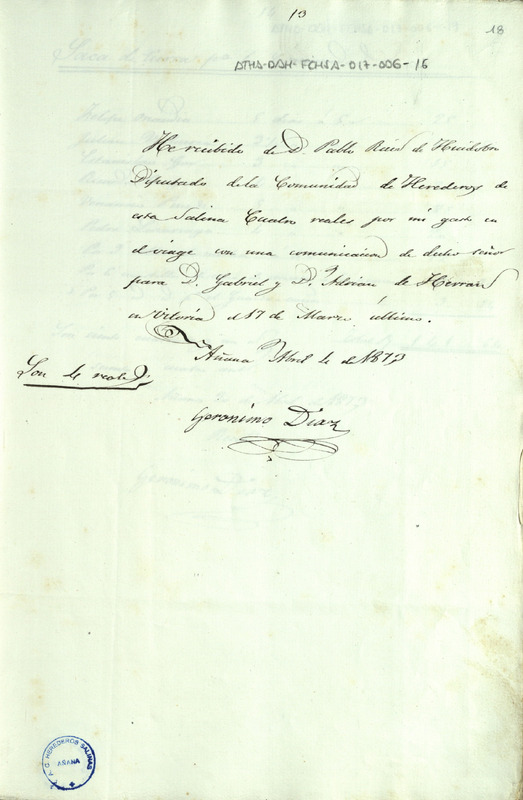 13
18
ATHA-DAH-FCHSA-017-006-16
He recibido de D. Pablo Ruiz de Huidobro
Diputado de la Comunidad de Herederos de
esta Salina Cuatro reales por mi gasto en
el viage con una comunicacion de dicho señor
para D. Gabriel y D. Adrian de Herran
en Vitoria el 17 de Marzo último.
Añana Abril 4 de 1873
Son 4 reales
Geronimo Diaz
A.C. HEREDEROS SALINAS
AÑANA